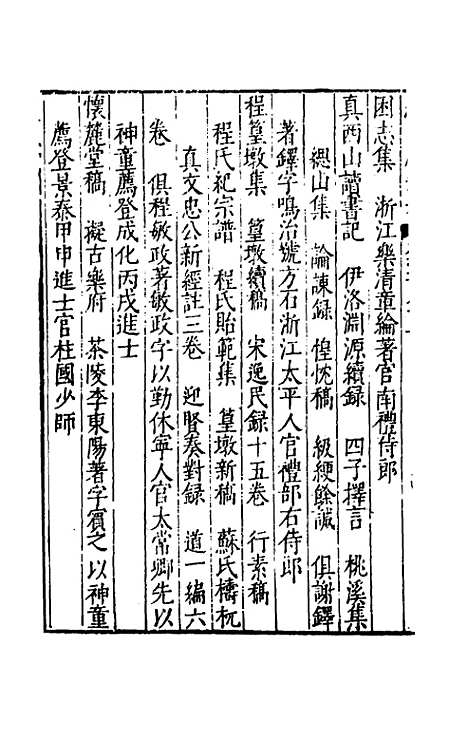 困志集　浙江樂清章綸著官南禮侍郎
真西山讀書記　伊洛淵源續錄　四子擇言　桃溪集
緦山集　論諫錄　惶忱稿　級綆餘誠　俱謝鐸
著鐸字鳴治號方石浙江太平人官禮部右侍郎
程篁墩集　篁墩續稿　宋逸民錄十五卷　行素稿
程氏祀宗譜　程氏貽範集　篁墩新稿　蘇氏檮杌
真文忠公新經註三卷　迎賢奏對錄　道一編六
卷　俱程敏政著敏政字以勤休寧人官太常卿先以
神童薦登成化丙戌進士
懷麓堂稿　擬古樂府　茶陵李東陽著字賓之以神童
薦登景泰甲申進士官柱國少師